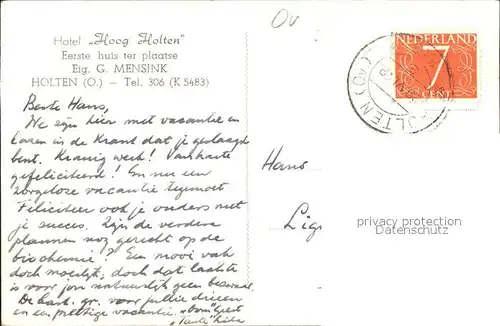 Ov
Hotel „Hoog Holten"
Eerste huis ter plaatse
Eig. G. MENSINK
HOLTEN (O.) – Tel. 306 (K 5483)
NEDERLAND
7
CENT
HOLTEN (O)
Beste Hans,
We zijn hier met vacantie en
lazen in de Krant dat je geslaagd
bent. Kranig werk! Van harte
gefeliciteerd! En nu een
zorgeloze vacantie tegemoet
Feliciteer ook je ouders met
je succes. Zijn de verdere
plannen nog gericht op de
biochemie? Een mooi vak
doch moeilijk, doch dat laatste
is voor jou natuurlijk geen bezwaar.
De hart. gr. voor jullie drieën
en een prettige vacantie. „oom"
„Tante"
Hans
Lig
privacy protection
AnsichtskartenVersand